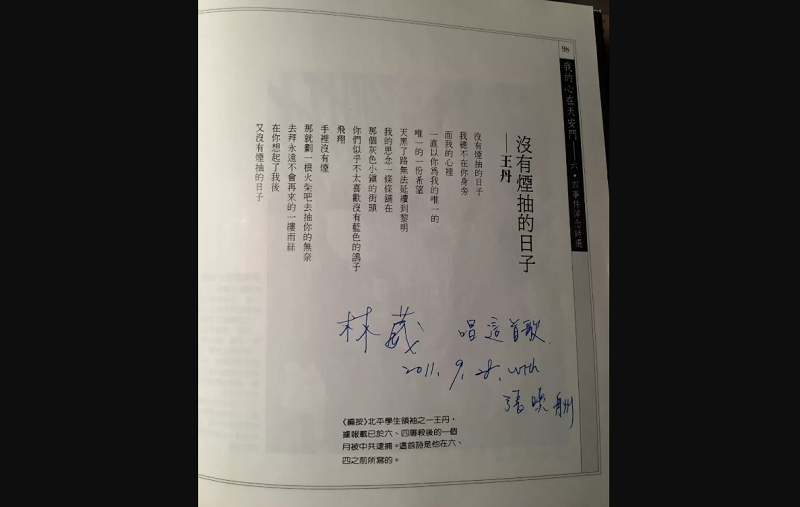 98
我的心在天安門——六・四事件悼念詩選
沒有煙抽的日子
——王丹
沒有煙抽的日子
我總不在你身旁
而我的心裡
一直以你為我的唯一的
唯一的一份希望
天黑了路無法延續到黎明
我的思念一條條鋪在
那個灰色小鎮的街頭
你們似乎不太喜歡沒有藍色的鴿子
飛翔
手裡沒有煙
那就劃一根火柴吧去抽你的無奈
去拜永遠不會再來的一縷雨絲
在你想起了我後
又沒有煙抽的日子
林 唱這首歌
2011. 9. 28. with
張
《編按》北平學生領袖之一王丹,
據報載已於六、四屠殺後的一個
月被中共逮捕。這首詩是他在六、
四之前所寫的。